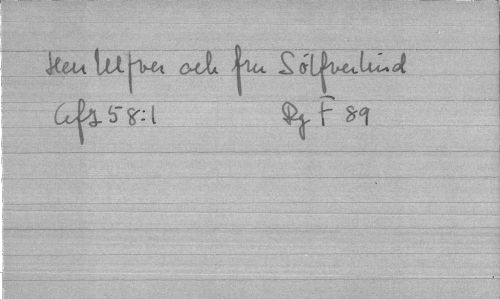 Herr Ulfver och fru Sölfverlind
Afz 58:1 Rg F 89